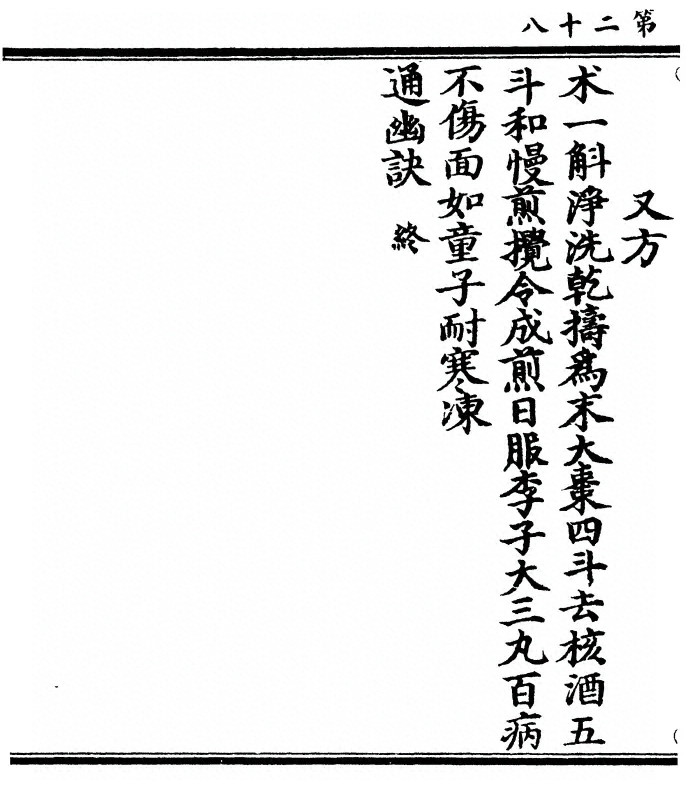 第二十八
又方
术一斛淨洗乾擣爲末大棗四斗去核酒五
斗和慢煎攪令成煎日服李子大三丸百病
不傷面如童子耐寒凍
通幽訣 終